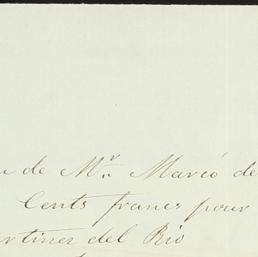 de Mr. Marcó de
Cents francs pour
artinez del Rio